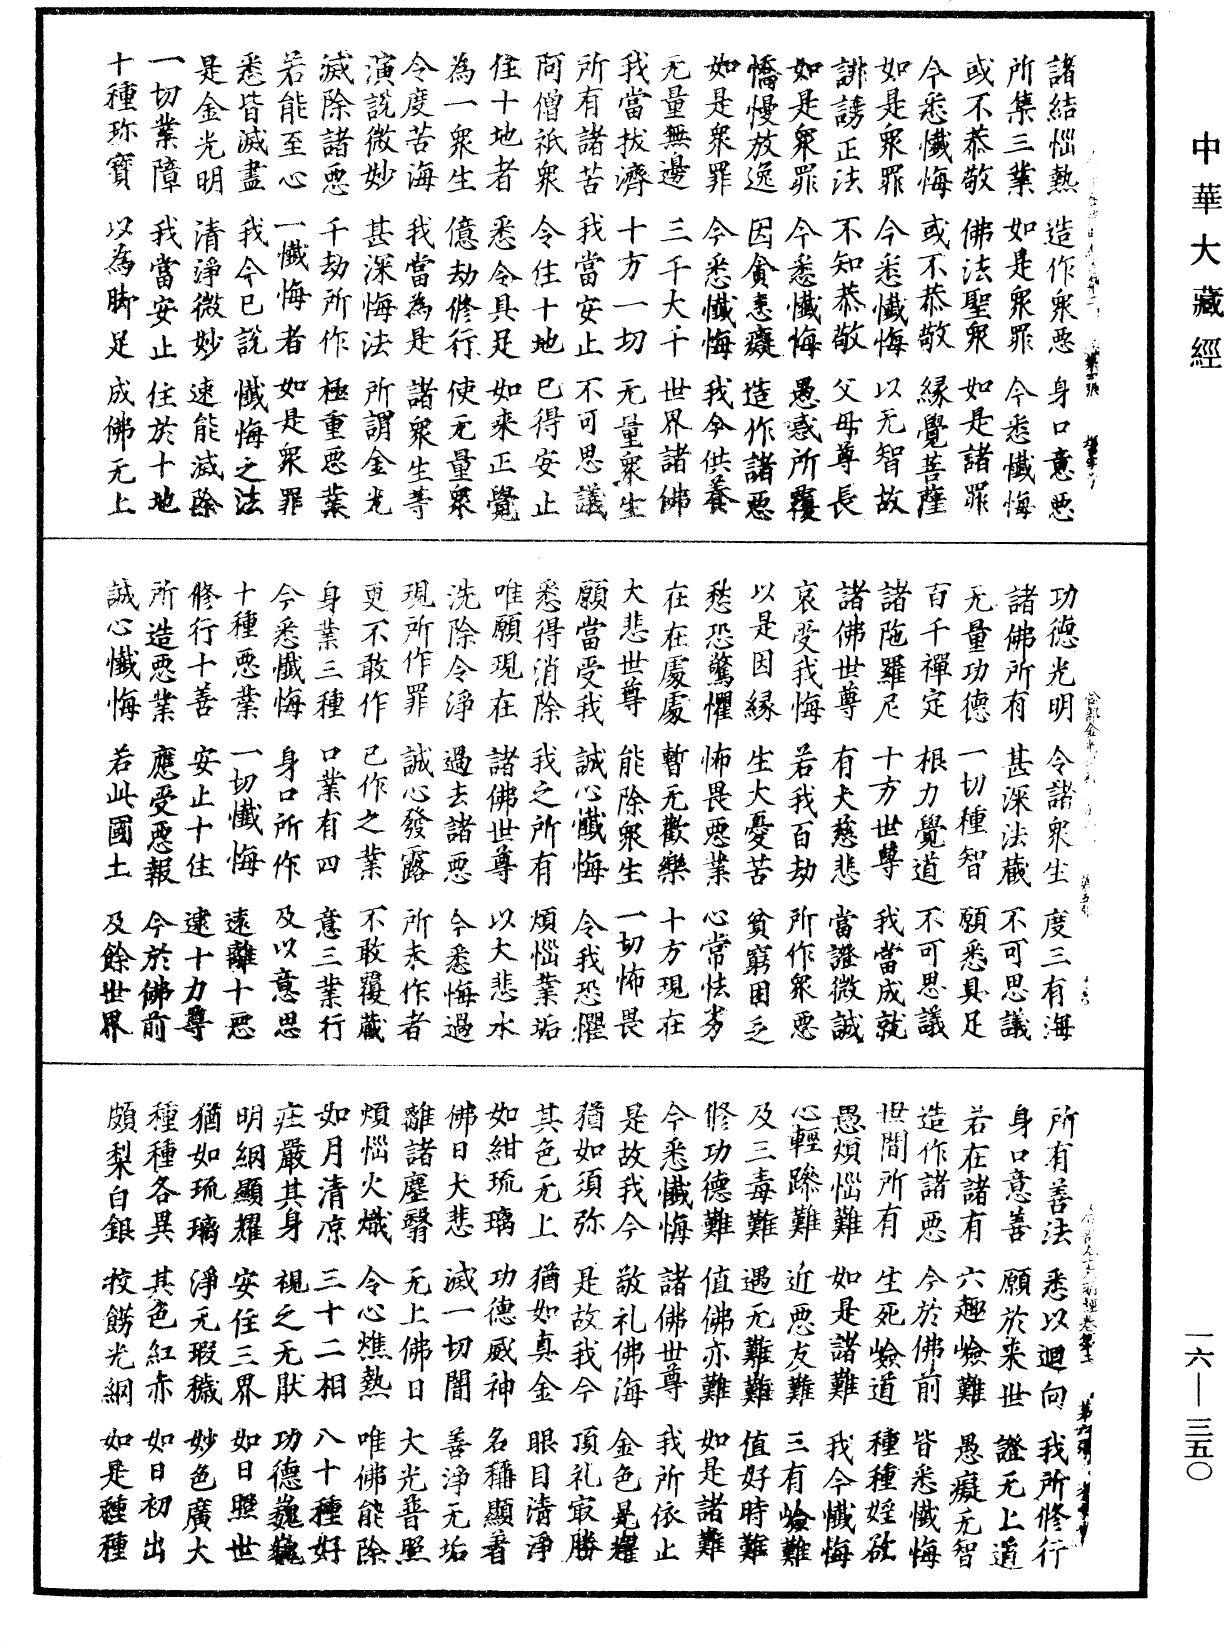 中華大藏經
諸結惱熱 造作衆惡 身口意惡
所集三業 如是衆罪 今悉懺悔
或不恭敬 佛法聖衆 如是諸罪
今悉懺悔 或不恭敬 緣覺菩薩
如是衆罪 今悉懺悔 以无智故
誹謗正法 不知恭敬 父母尊長
如是衆罪 今悉懺悔 愚惑所覆
憍慢放逸 因貪恚癡 造作諸惡
如是衆罪 今悉懺悔 我今供養
无量無邊 三千大千 世界諸佛
我當拔濟 十方一切 无量衆生
所有諸苦 我當安止 不可思議
阿僧祇衆 令住十地 已得安止
住十地者 悉令具足 如來正覺
為一衆生 億劫修行 使无量衆
令度苦海 我當為是 諸衆生等
演說微妙 甚深悔法 所謂金光
滅除諸惡 千劫所作 極重惡業
若能至心 一懺悔者 如是衆罪
悉皆滅盡 我今已說 懺悔之法
是金光明 清淨微妙 速能滅除
一切業障 我當安止 住於十地
十種珎寶 以為脚足 成佛无上
功德光明 令諸衆生 度三有海
諸佛所有 甚深法藏 不可思議
无量功德 一切種智 願悉具足
百千禪定 根力覺道 不可思議
諸陁羅尼 十方世尊 我當成就
諸佛世尊 有大慈悲 當證微誠
哀受我悔 若我百劫 所作衆惡
以是因緣 生大憂苦 貧窮困乏
愁恐驚懼 怖畏惡業 心常怯劣
在在處處 暫无歡樂 十方現在
大悲世尊 能除衆生 一切怖畏
願當受我 誠心懺悔 令我恐懼
悉得消除 我之所有 煩惱業垢
唯願現在 諸佛世尊 以大悲水
洗除令淨 過去諸惡 今悉悔過
現所作罪 誠心發露 所未作者
更不敢作 已作之業 不敢覆藏
身業三種 口業有四 意三業行
今悉懺悔 身口所作 及以意思
十種惡業 一切懺悔 遠離十惡
修行十善 安止十住 逮十力尊
所造惡業 應受惡報 今於佛前
誠心懺悔 若此國土 及餘世界
所有善法 悉以迴向 我所修行
身口意善 願於來世 證无上道
若在諸有 六趣嶮難 愚癡无智
造作諸惡 今於佛前 皆悉懺悔
世間所有 生死嶮道 種種婬欲
愚煩惱難 如是諸難 我今懺悔
心輕躁難 近惡友難 三有嶮難
及三毒難 遇无難難 值好時難
修功德難 值佛亦難 如是諸難
今悉懺悔 諸佛世尊 我所依止
是故我今 敬礼佛海 金色晃耀
猶如須弥 是故我今 頂礼寂勝
其色无上 猶如真金 眼目清淨
如紺琉璃 功德威神 名稱顯著
佛日大悲 滅一切闇 善淨无垢
離諸塵翳 无上佛日 大光普照
煩惱火熾 令心燋熱 唯佛能除
如月清凉 三十二相 八十種好
莊嚴其身 視之无猒 功德巍巍
明網顯耀 安住三界 如日照世
猶如琉璃 淨无瑕穢 妙色廣大
種種各異 其色紅赤 如日初出
頗梨白銀 挍餝光網 如是種種
一六—三五〇